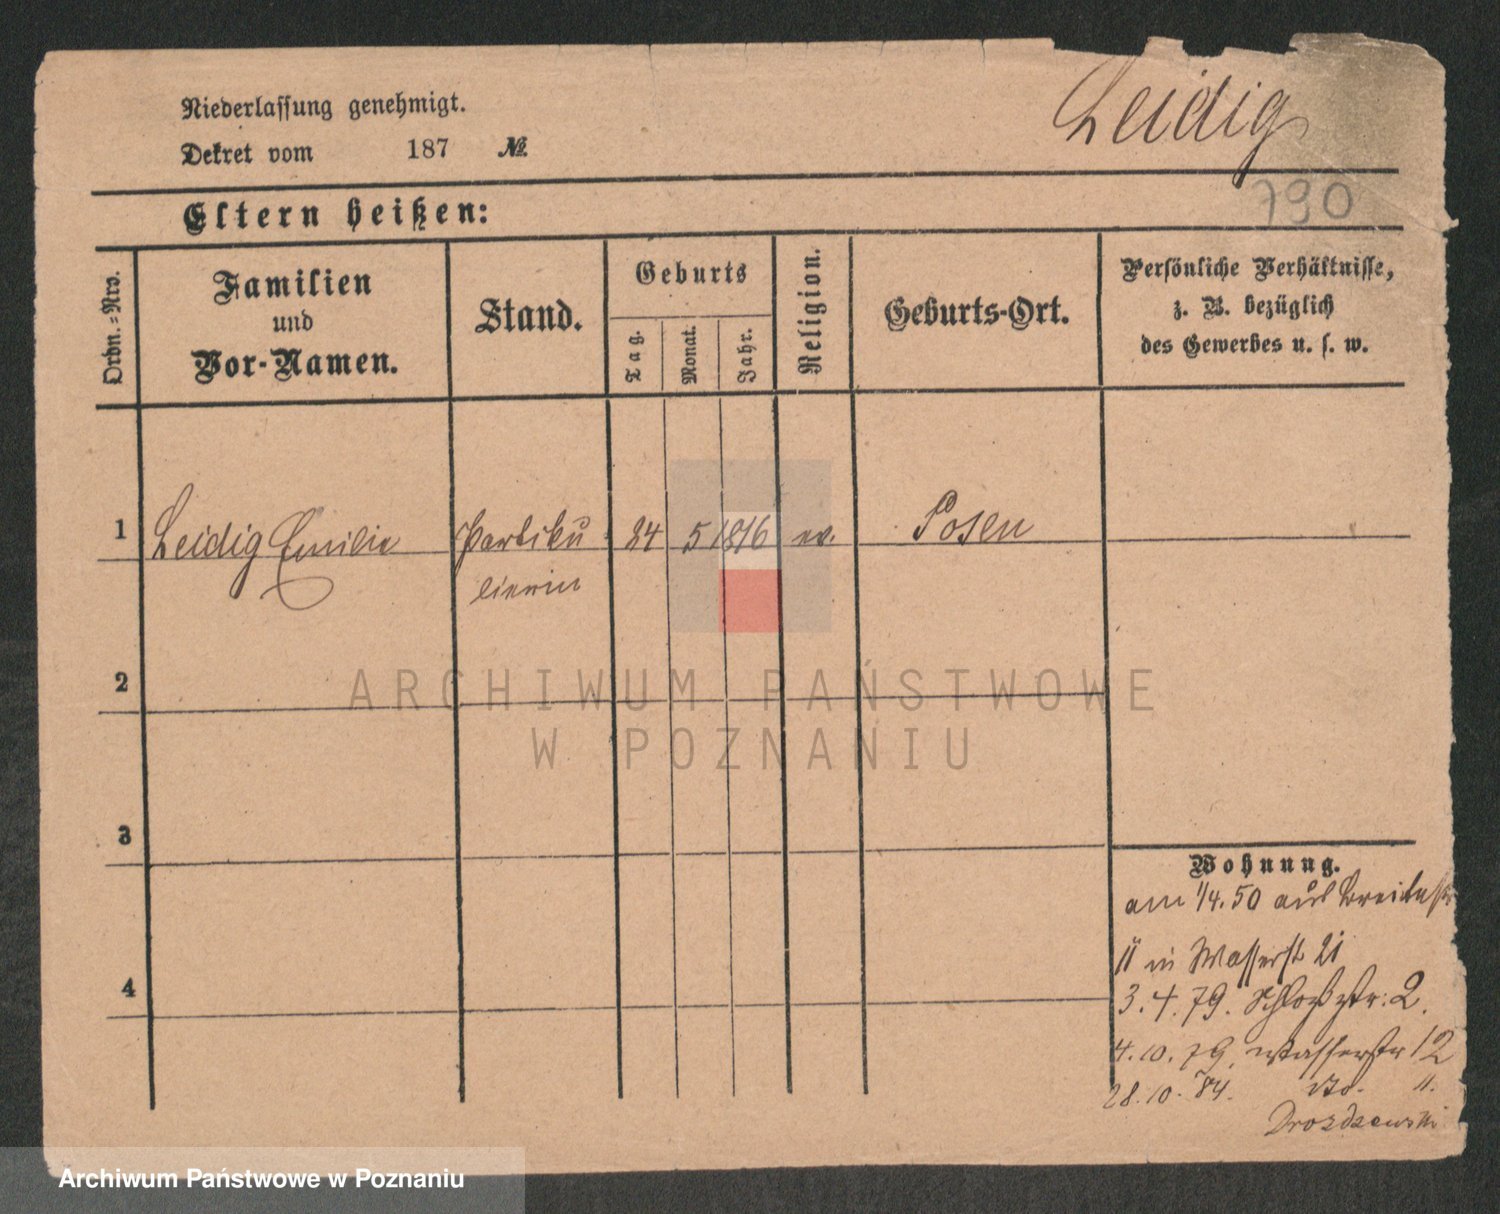 Niederlassung genehmigt.
Leidig
Dekret vom 187 №.
790
Eltern heißen:
Ordn.-Nro.
Familien
und
Vor-Namen.
Stand.
Geburts
Tag.
Monat.
Jahr.
Religion.
Geburts-Ort.
Persönliche Verhältnisse,
z. B. bezüglich
des Gewerbes u. s. w.
1 Leidig Emilie Partiku 24 5 1816 ev. Posen
lierin
2
3
4
Wohnung.
am 1/4. 50 aus Breitestr
11 in Wasserstr 21
3. 4. 79. Schloßstr: 2.
4. 10. 79. Wasserstr 12
28. 10. 84. do. 11.
Drozdzewski
ARCHIWUM PAŃSTWOWE
W POZNANIU
Archiwum Państwowe w Poznaniu